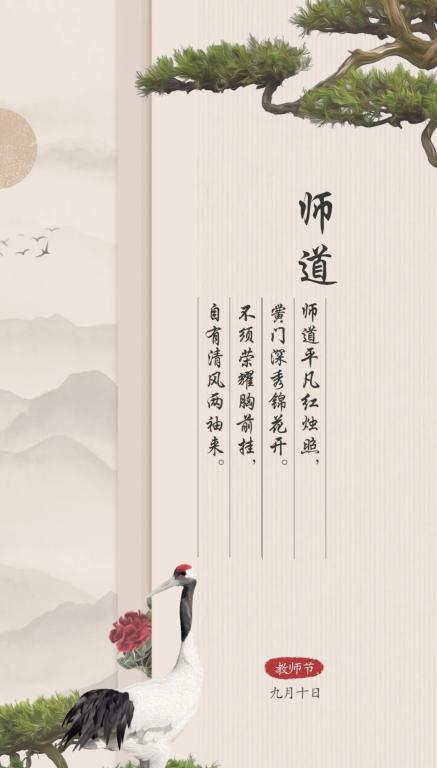 师道
师道平凡红烛照，
黉门深秀锦花开。
不须荣耀胸前挂，
自有清风两袖来。
教师节
九月十日